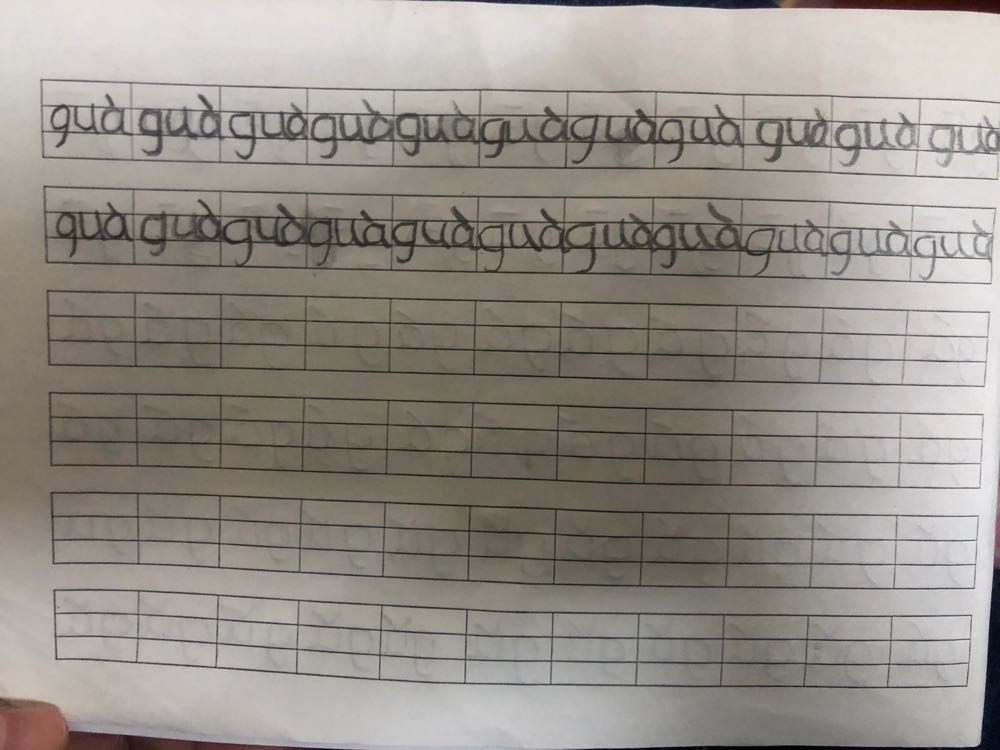 guà guà guà guà guà guà guà guà guà guà guà
guà guà guà guà guà guà guà guà guà guà guà